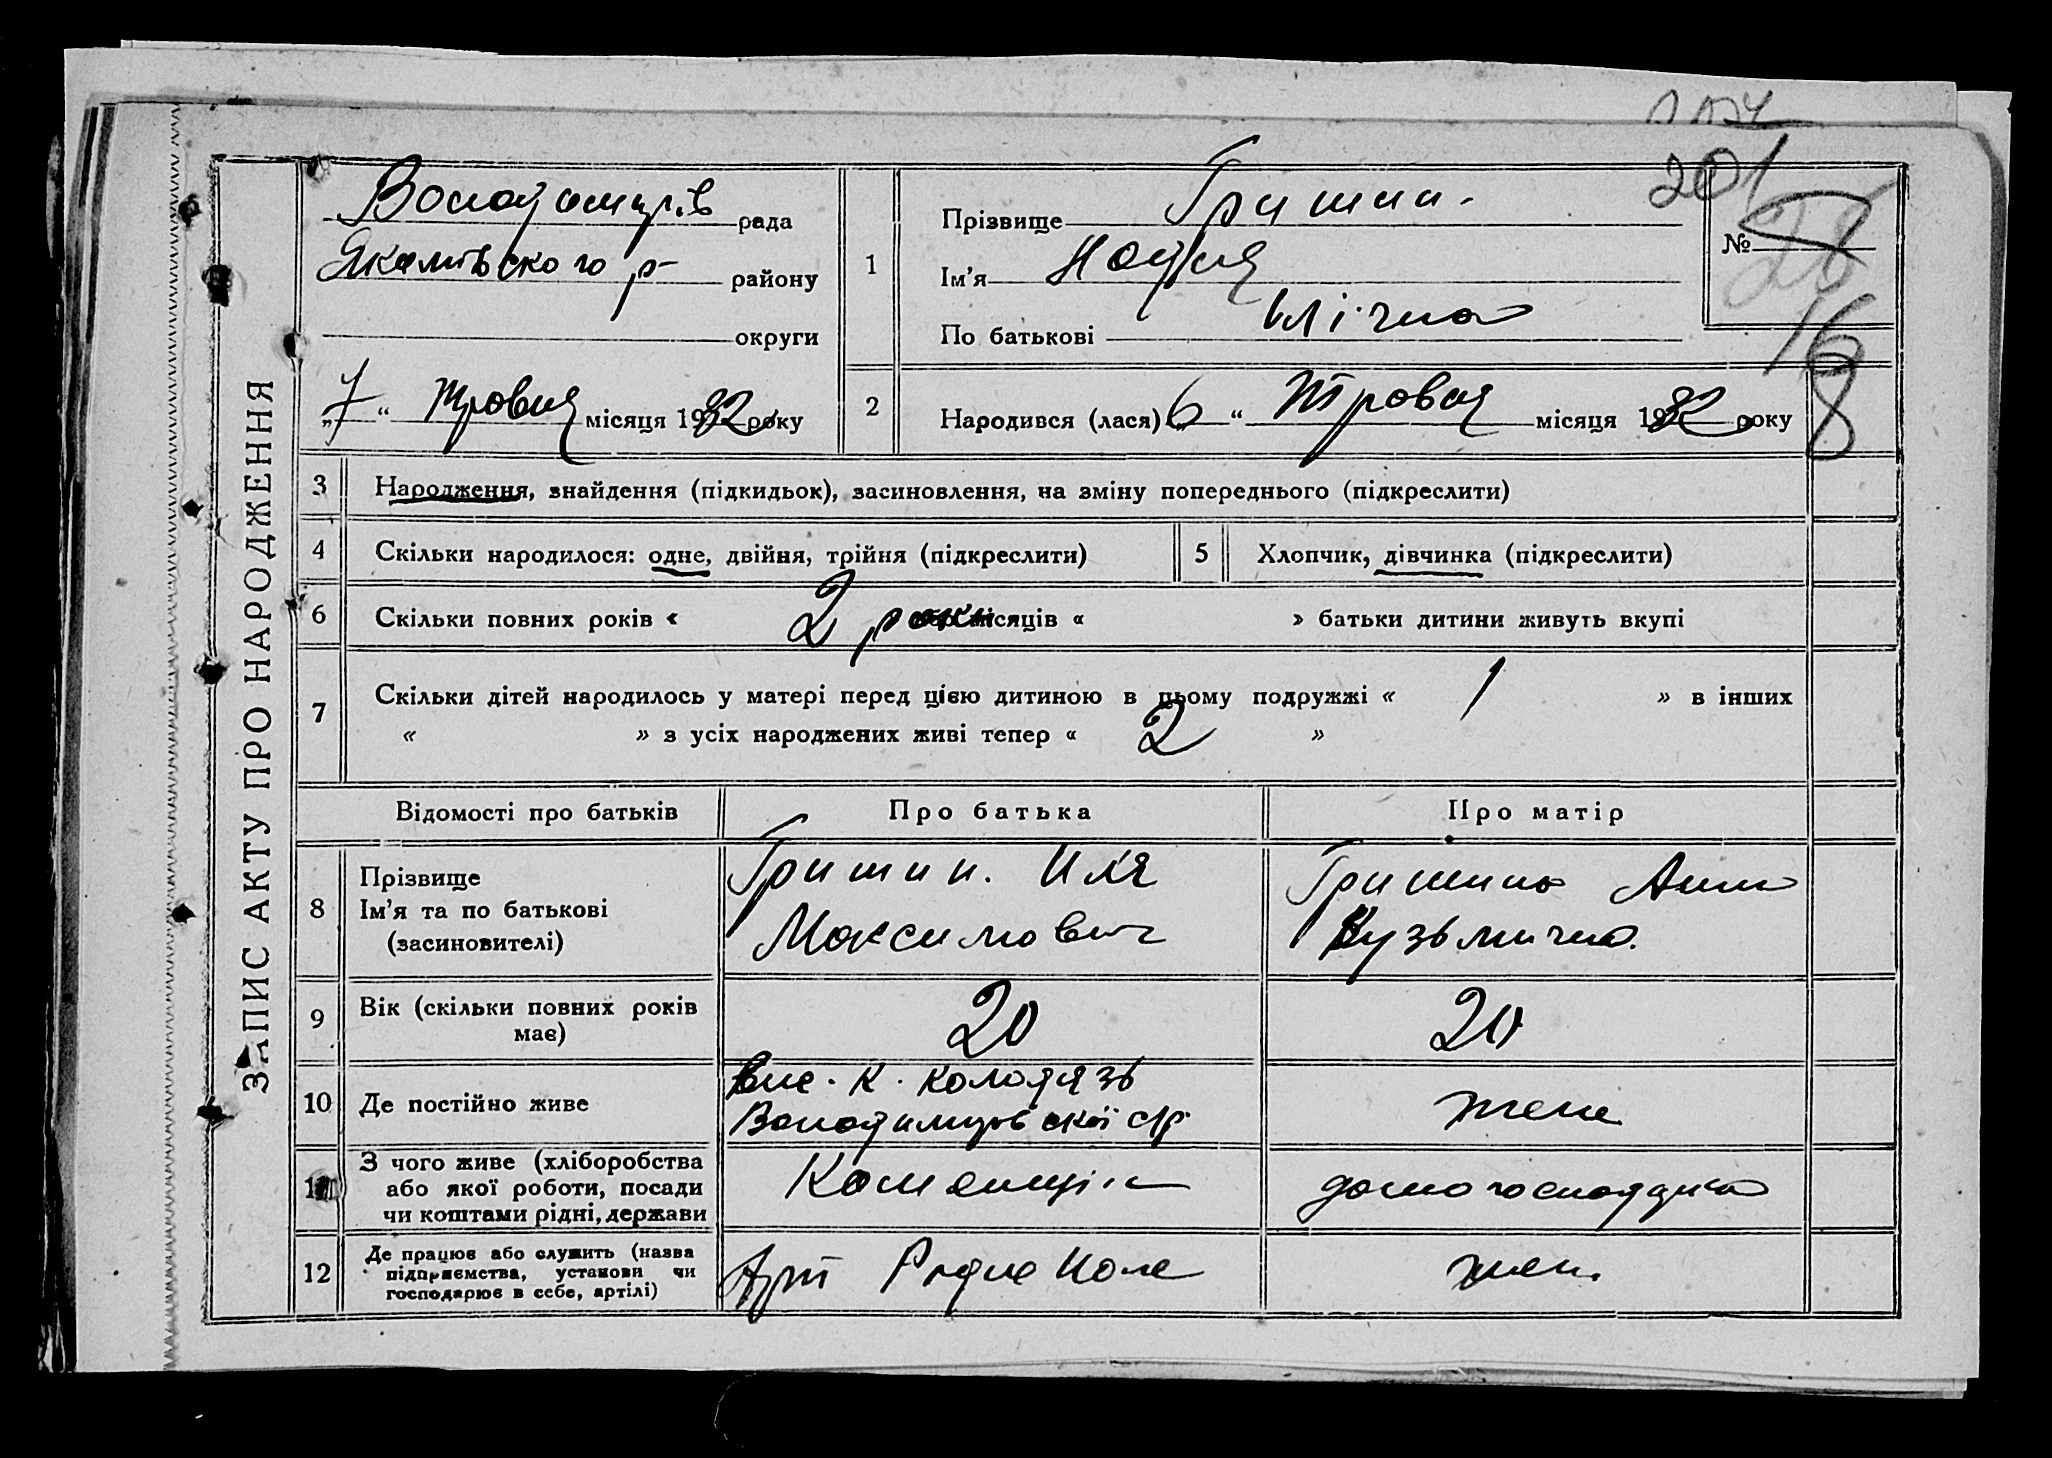 ЗАПИС АКТУ ПРО НАРОДЖЕННЯ
201
Володимирів рада
Якимівского р- району
округи
„7“ Травня місяця 1932 року
1
Прізвище Гришин.
Ім'я Надія
По батькові Ілічна
№
28
16
8
2
Народився (лася) „6“ Травня місяця 1932 року
3 Народження, знайдення (підкидьок), засиновлення, на зміну попереднього (підкреслити)
4 Скільки народилося: одне, двійня, трійня (підкреслити) 5 Хлопчик, дівчинка (підкреслити)
6 Скільки повних років « 2 роки місяців « » батьки дитини живуть вкупі
7 Скільки дітей народилось у матері перед цією дитиною в цьому подружжі « 1 » в інших
« » з усіх народжених живі тепер « 2 »
Відомості про батьків Про батька Про матір
8 Прізвище
Ім'я та по батькові
(засиновителі)
Гришин. Иля
Максимович
Гришина Анна
Кузьмична.
9 Вік (скільки повних років
має)
20
20
10 Де постійно живе
вис. К. Колодязь
Володимирівської с/р
11 З чого живе (хліборобства
або якої роботи, посади
чи коштами рідні, держави
домогосподарка
12 Де працює або служить (назва
підприємства, установи чи
господарює в себе, артілі)
Арт